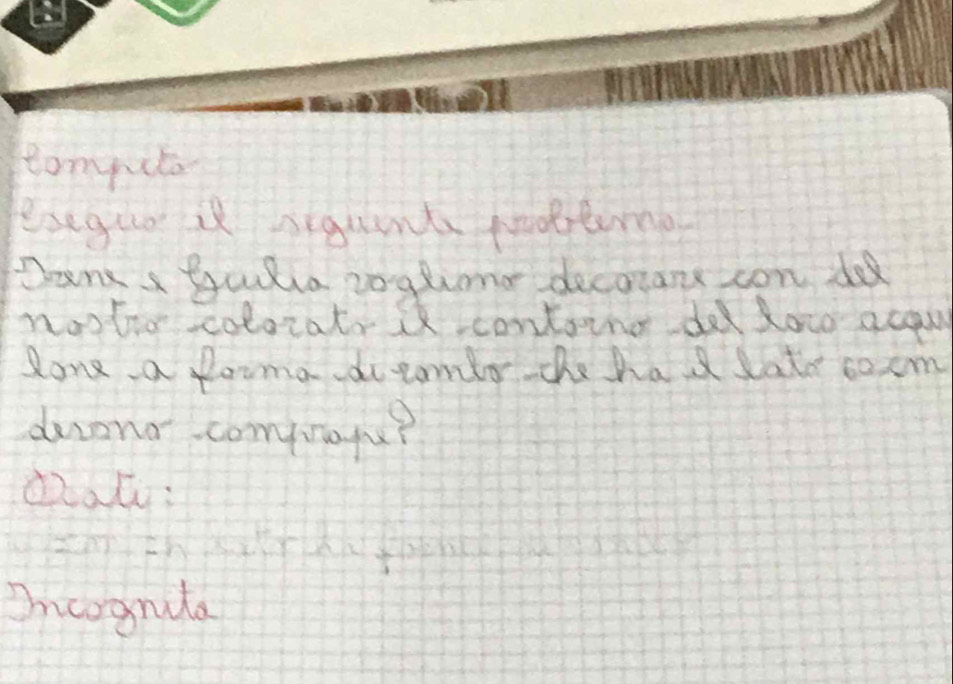 Compito
Eseguo il seguente problema
Irene e Giulia vogliono decorare con del
nastro colorato il contorno del loro aqui
lone a forma di rombo che ha il lato 60 cm
devono comprare?
Dati:
Incognita